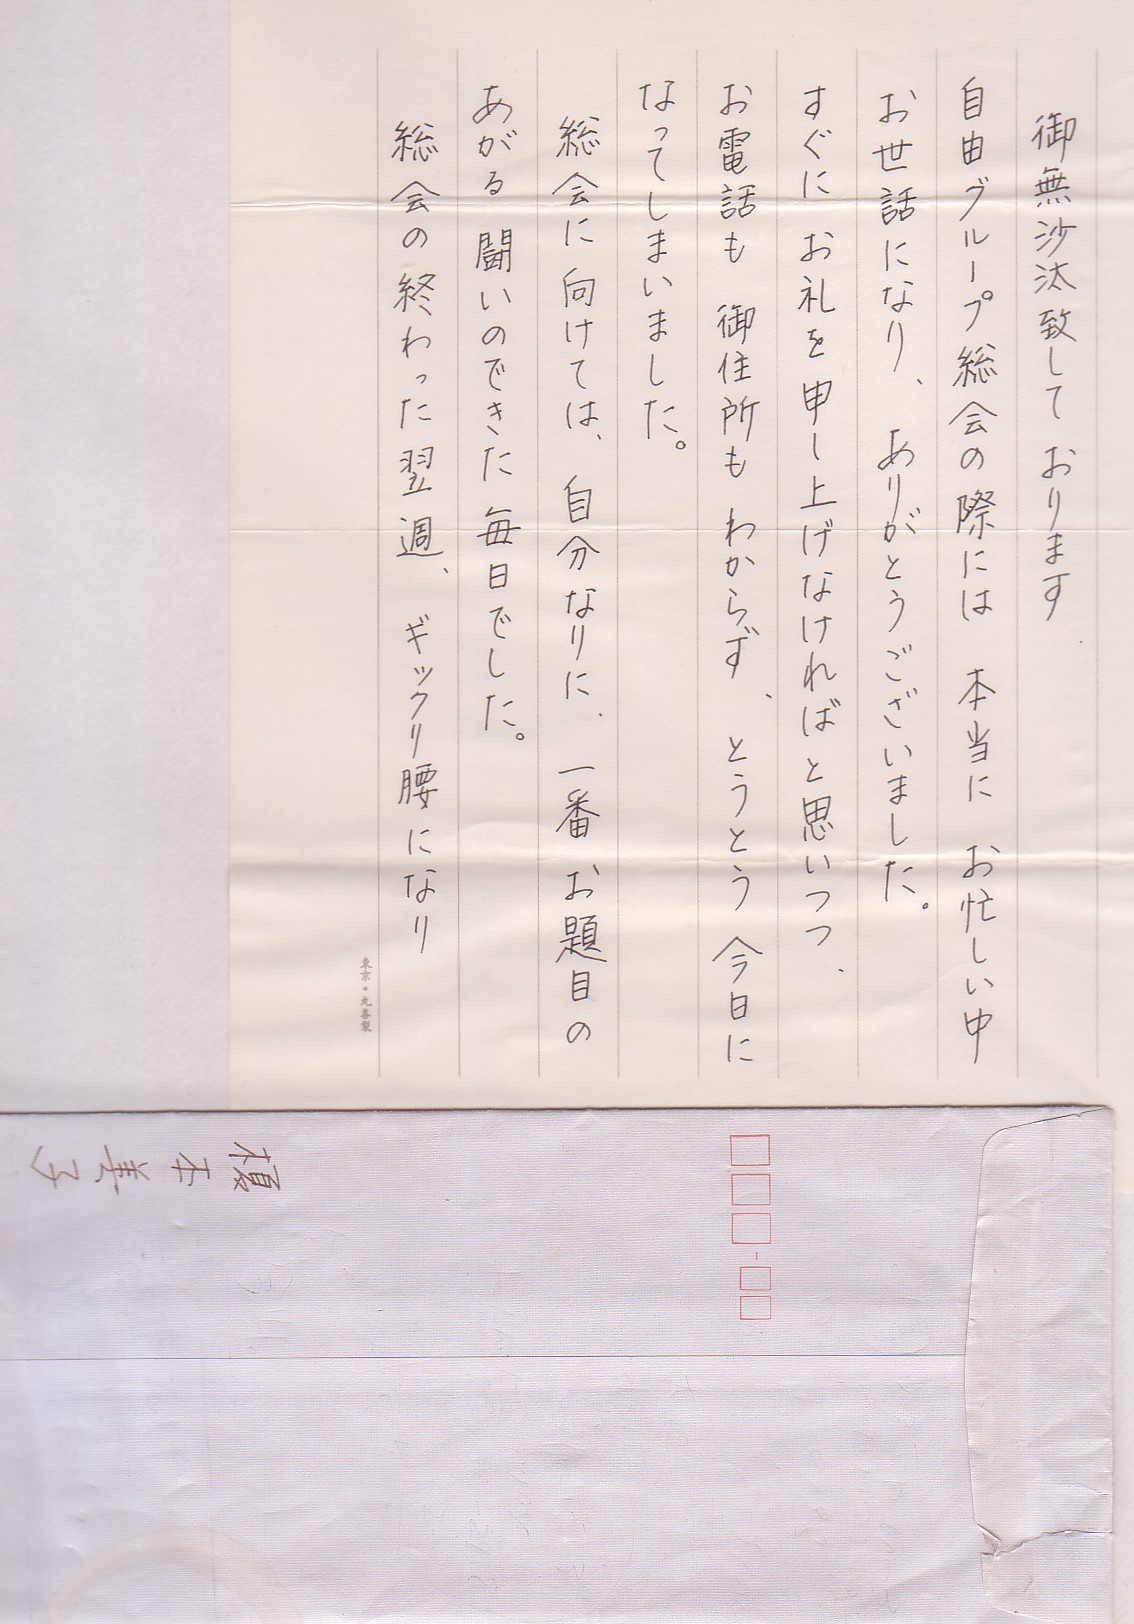 御無沙汰致しております
自由グループ総会の際には 本当に お忙しい中
お世話になり、ありがとうございました。
すぐに お礼を申し上げなければと思いつつ、
お電話も 御住所も わからず、とうとう 今日に
なってしまいました。
総会に向けては、自分なりに、一番 お題目の
あがる 闘いのできた 毎日でした。
総会の終わった翌週、ギックリ腰になり
東京・丸善製
榎本美子